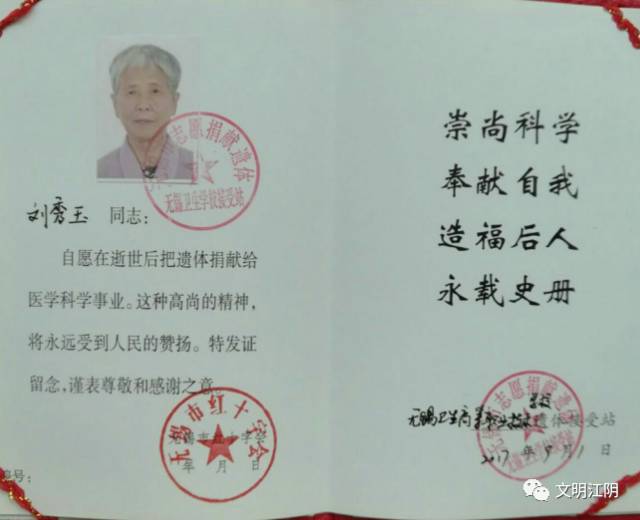 刘秀玉 同志:
自愿在逝世后把遗体捐献给
医学科学事业。这种高尚的精神,
将永远受到人民的赞扬。特发证
留念,谨表尊敬和感谢之意。
无锡市红十字会
年 月 日
编号:
志愿捐献遗体
无锡卫生学校接受站
无锡市红十字会
崇尚科学
奉献自我
造福后人
永载史册
无锡卫生高等职业技术学校遗体接受站
2017年9月1日
志愿捐献遗体
无锡卫生学校接受站
文明江阴